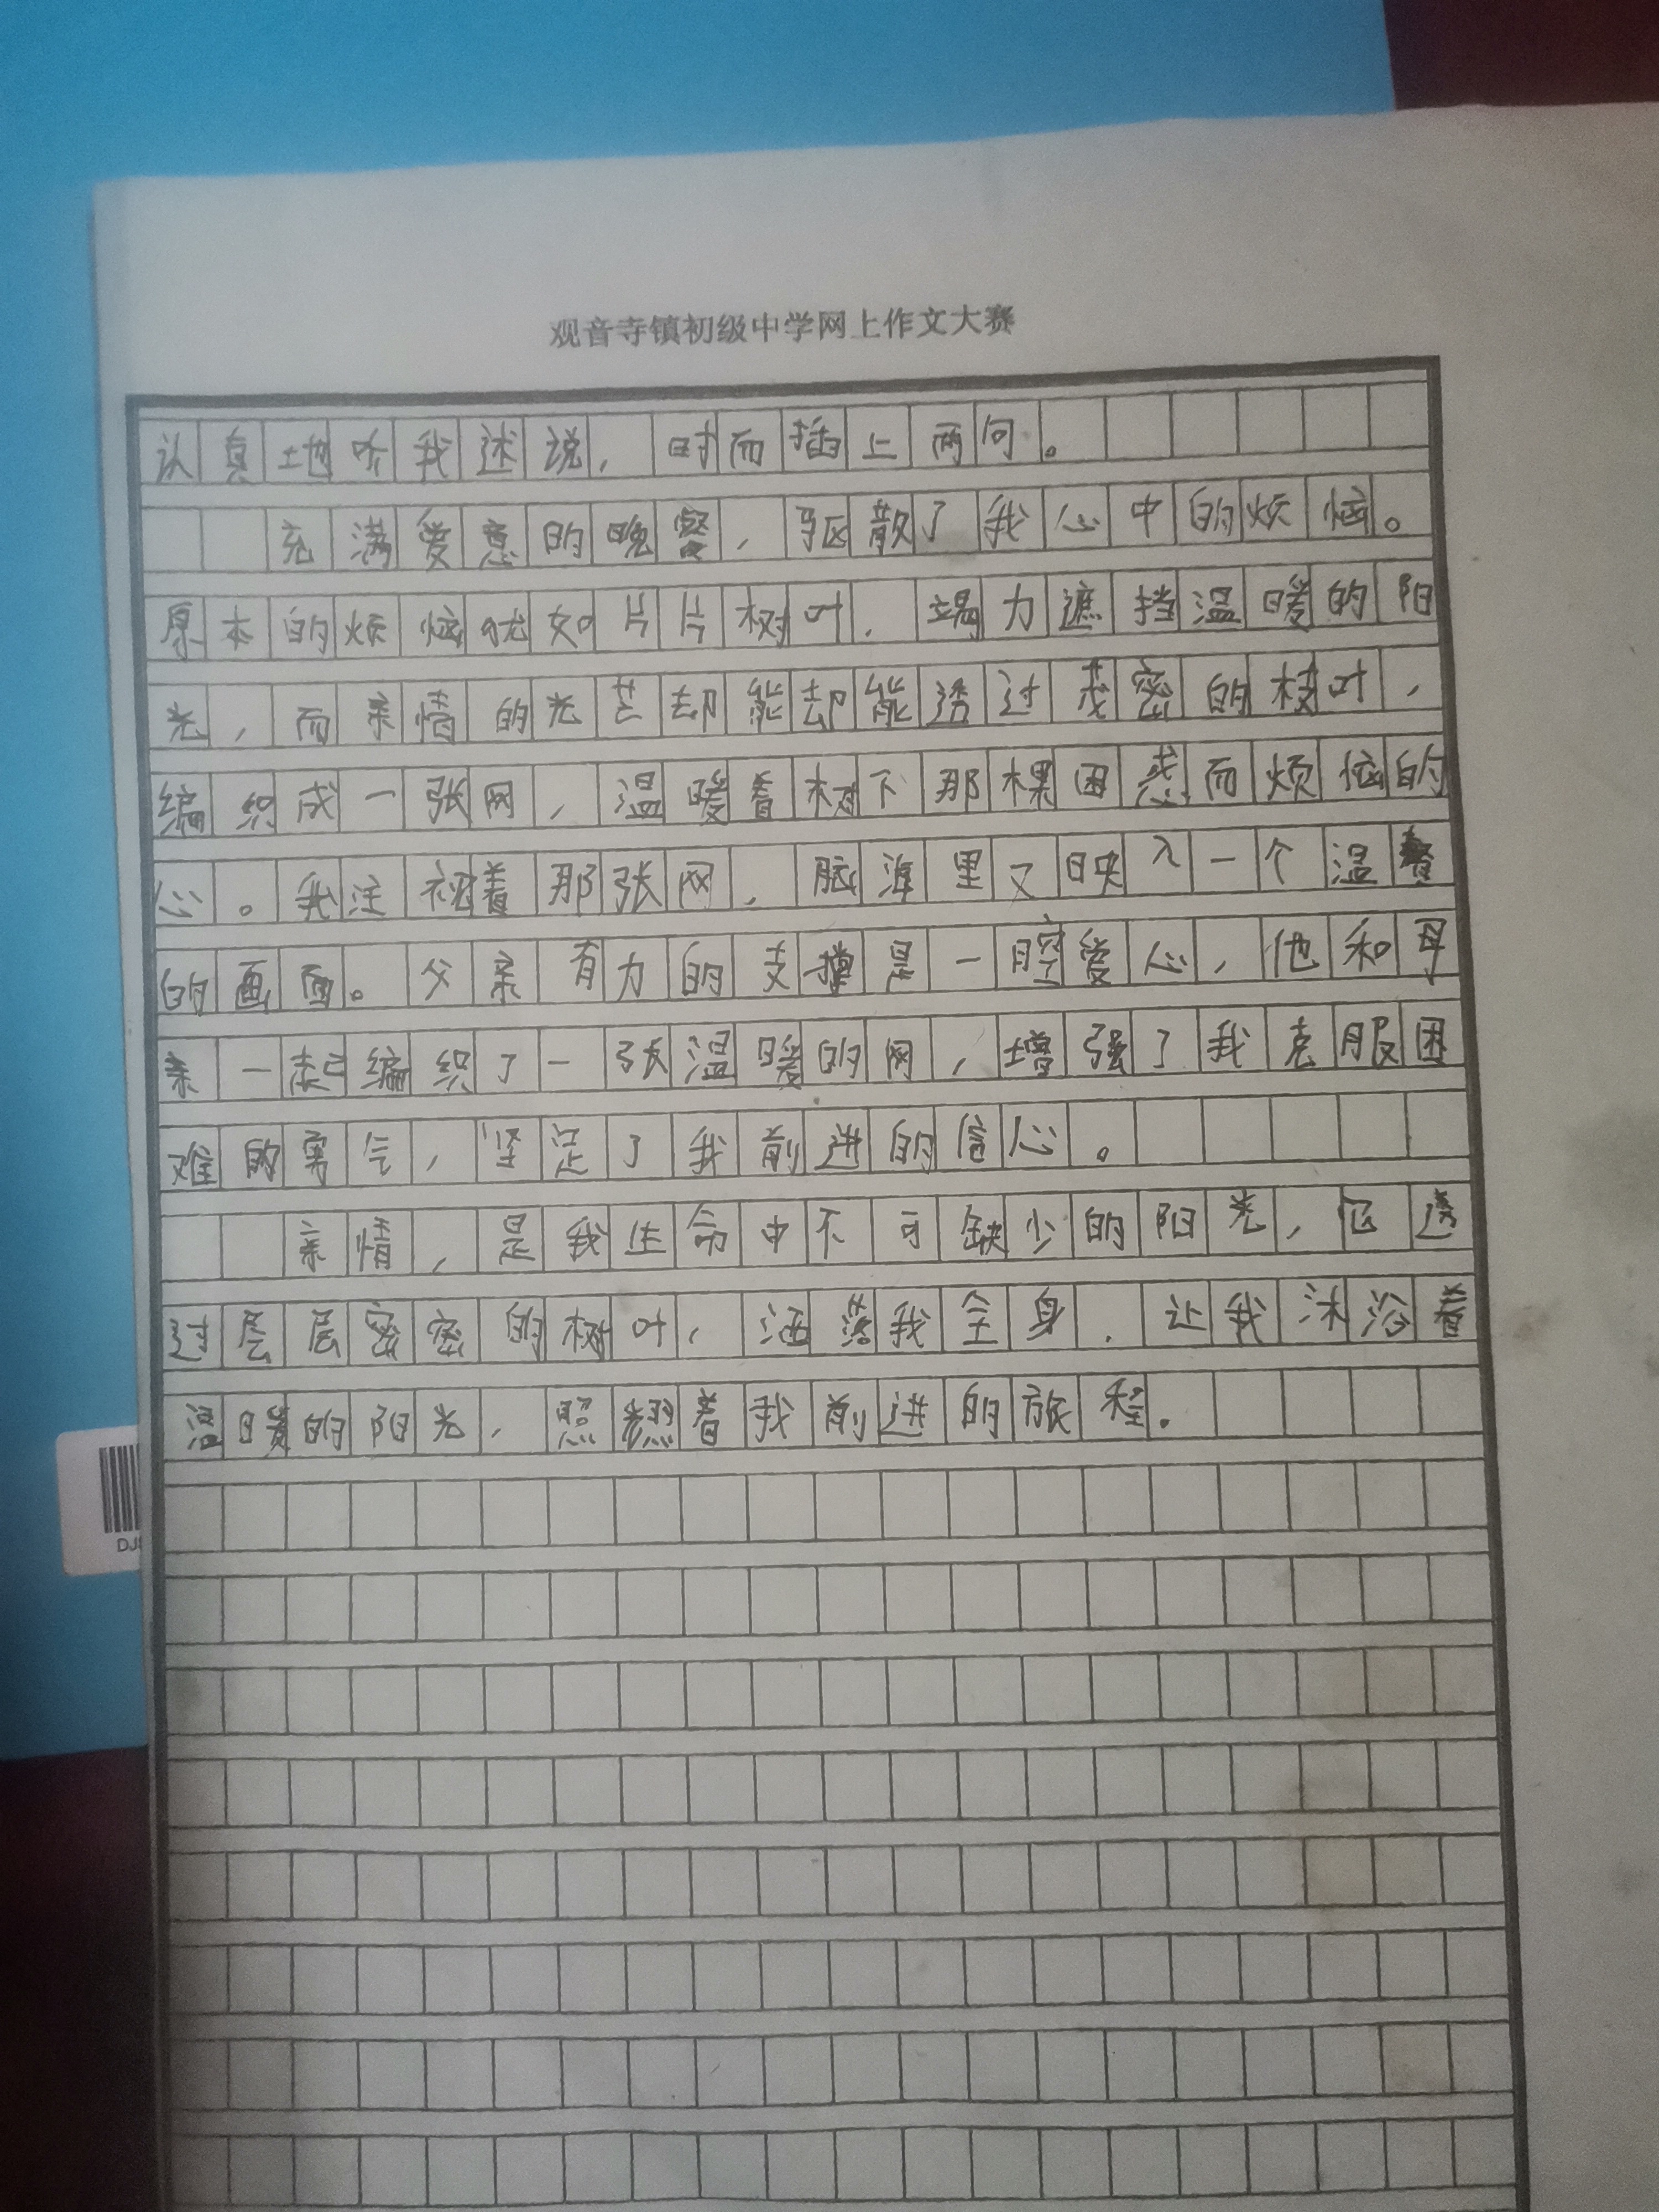 观音寺镇初级中学网上作文大赛
认真地听我述说，时而插上两句。
充满爱意的晚餐，驱散了我心中的烦恼。
原本的烦恼犹如片片树叶，竭力遮挡温暖的阳
光，而亲情的光芒却能却能透过茂密的枝叶，
编织成一张网，温暖着树下那棵困惑而烦恼的
心。我注视着那张网，脑海里又映入一个温馨
的画面。父亲有力的支撑是一腔爱心，他和母
亲一起编织了一张温暖的网，增强了我克服困
难的勇气，坚定了我前进的信心。
亲情，是我生命中不可缺少的阳光，它透
过层层密密的树叶，洒落我全身，让我沐浴着
温暖的阳光，照耀着我前进的旅程。
DJS